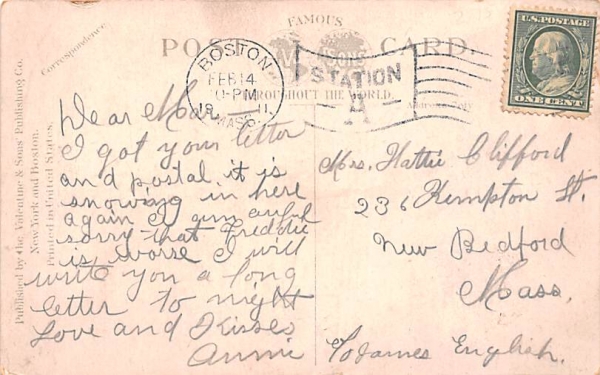 FAMOUS
POST CARD.
SONS
THROUGHOUT THE WORLD.
Correspondence
Published by the Valentine & Sons' Publishing Co.
New York and Boston.
Printed in United States.
BOSTON
FEB 14
PM
19 11
MASS.
STATION
A
Address Only
U.S. POSTAGE
ONE CENT
Dear Ma.
I got your letter
and postal it is
snowing in here
again I gum awful
sorry that Freddie
is worse I will
write you a long
letter to night
Love and Kisses
Annie
Mrs. Hattie Clifford
236 Kempton St.
New Bedford
Mass.
To James English.